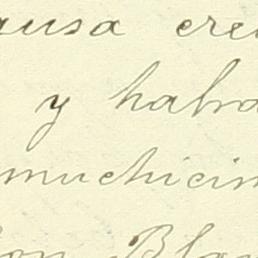 ausa cre
y habra
muchicim
on Bla